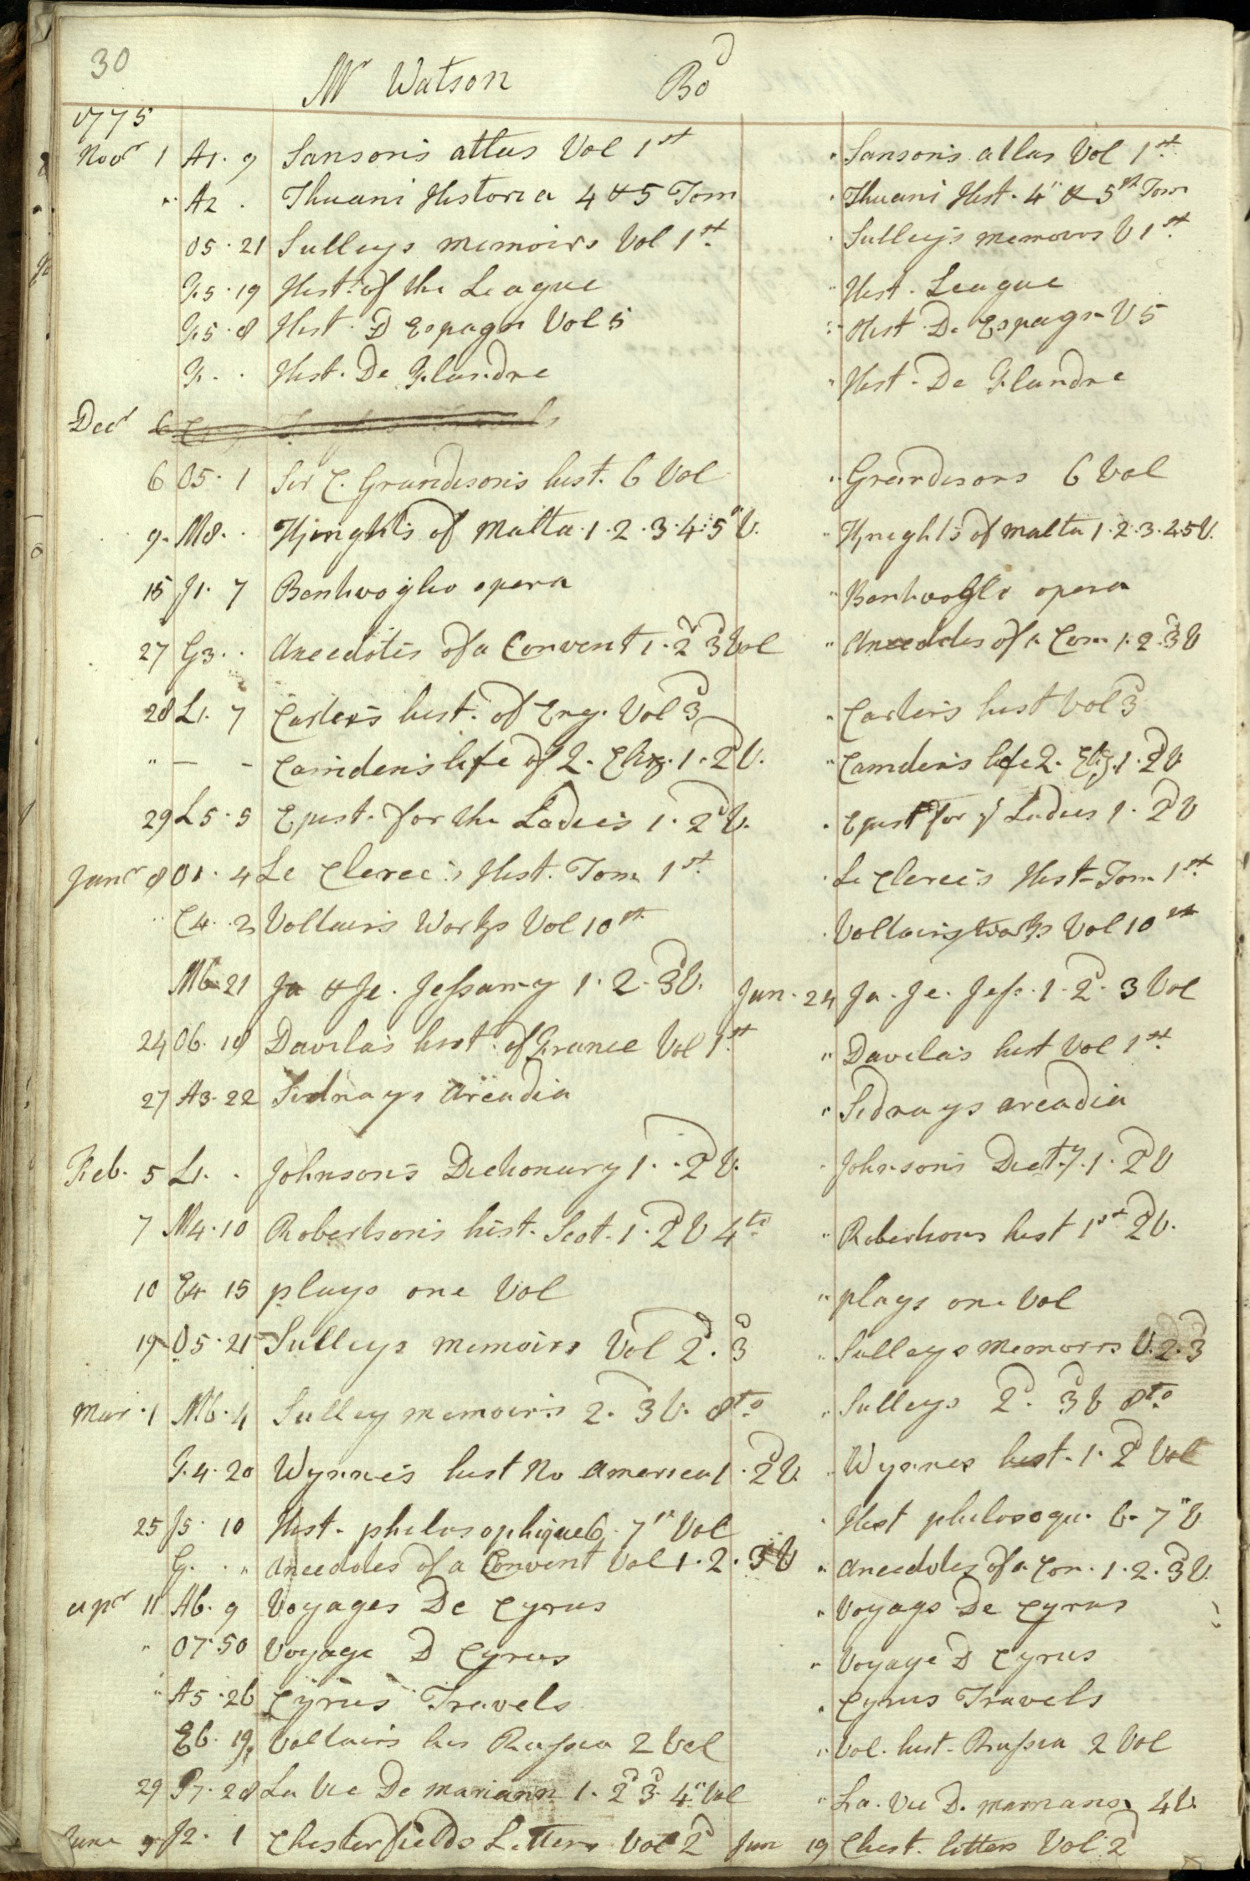 30
Mr Watson Bod
1775
Novr 1 A1. 9 Sanson's atlas Vol 1st " Sanson's atlas Vol 1st
" A2 . Thuani Historia 4 & 5 Tom " Thuani Hist. 4" & 5th Tom
O5. 21 Sulleys memoirs Vol 1st " Sulley's memoirs V 1st
F5. 19 Hist. of the League " Hist. League
F5. 8 Hist. D Espagn Vol 5 " Hist. D. Espagn V 5
F. . Hist. De Flandre " Hist. De Flandre
Decr 6
6 O5. 1 Sir C. Grandison's hist. 6 Vol " Grandisons 6 Vol
9. M8. . Knights of Malta. 1. 2. 3. 4. 5" V. " Knights of Malta 1. 2. 3. 4.5 V.
15 J1. 7 Bentivoglio opera " Bentivoglo opera
27 G3. . Anecdotes of a Convent 1. 2d 3d Vol " Anecdotes of a Con. 1. 2. 3d V
28 L1. 7 Carter's hist. of Eng. Vol 3d " Carter's hist Vol 3d
" — - Camden's life of Q. Eliz. 1. 2d V. " Camden's life Q. Eliz. 1. 2d V
29 L5. 5 Epist. for the Ladies 1. 2d V. " Epist for ye Ladies 1. 2d V
Janr 8 O1. 4 Le Clerce's Hist. Tom 1st " Le Clerce's Hist. Tom 1st
" C4. 2 Voltairs Works Vol 10th " Voltairs Works Vol 10th
M6. 21 Ja & Je. Jessamy 1. 2. 3d V. Jan. 24 Ja. Je. Jess. 1. 2d. 3 Vol
24 O6. 18 Davila's hist. of France Vol 1st " Davila's hist Vol 1st
27 A3. 22 Sidnays Arcadia " Sidnays arcadia
Feb. 5 L1. . Johnson's Dictionary 1. . 2d V. " Johnson's Dicty. 1. 2d V
7 M4. 10 Robertson's hist. Scot. 1. 2d V 4to " Robertsons hist 1st 2d V.
10 E4 15 plays one Vol " plays one Vol
19 O5. 21 Sulleys memoirs Vol 2d. 3d " Sulleys Memoirs V. 2. 3d
Mar. 1 M6. 4 Sulley memoirs 2. 3d V. 8to " Sulleys 2d. 3d V 8to
F.4. 20 Wynne's hist No America 1. 2d V. " Wynnes hist. 1. 2d Vol
25 J5. 10 Hist. philosophique 6. 7" Vol " Hist philosoqu. 6. 7" V
G. . " Anecdotes of a Convent Vol 1. 2. 3 V " Anecdotes of a Con. 1. 2. 3d V.
Apr 11 A6. 9 Voyages De Cyrus " Voyags De Cyrus
" O7. 50 Voyage D Cyrus " Voyage D Cyrus
" A5. 26 Cyrus Travels " Cyrus Travels
E6. 19 Voltairs his Russia 2 Vol " Vol. hist. Russia 2 Vol
29 P7. 28 La Vie De Mariann 1. 2d 3d. 4" Vol " La. Vie D. Marriane 4 V.
June 9 J2. 1 Chesterfields Letters Vol 2d Jun 19 Chest. letters Vol 2d